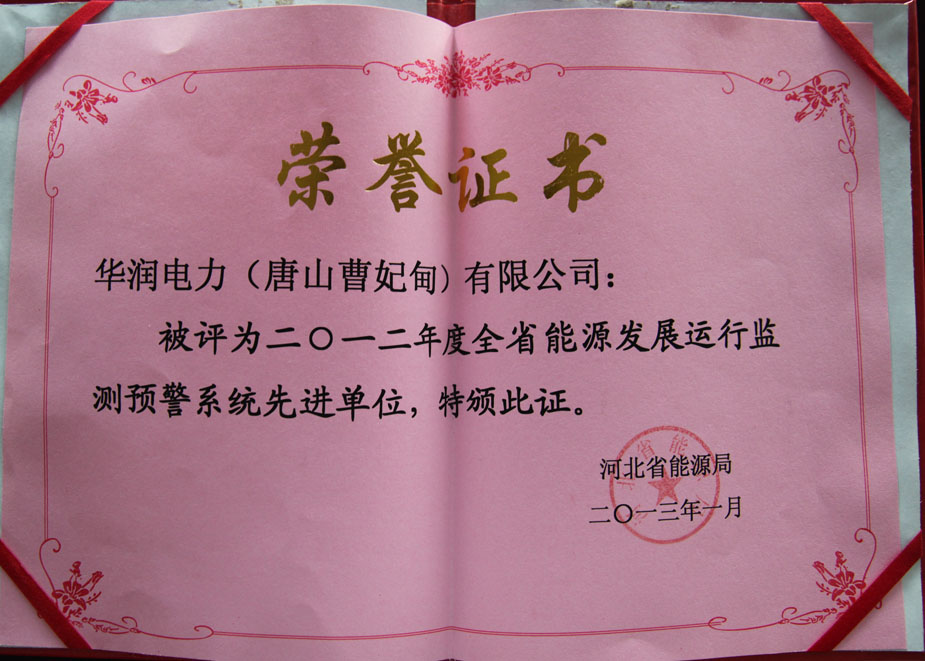 荣誉证书
华润电力（唐山曹妃甸）有限公司：
被评为二〇一二年度全省能源发展运行监
测预警系统先进单位，特颁此证。
河北省能源局
二〇一三年一月